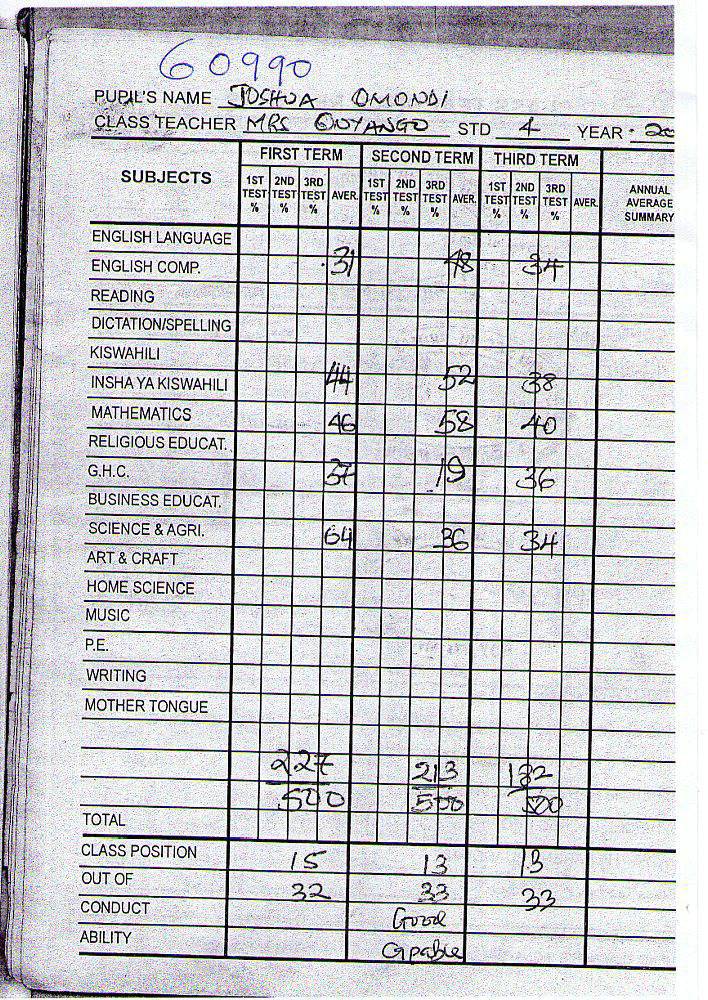 60990
PUPIL'S NAME JOSHUA OMONDI
CLASS TEACHER MRS ONYANGO STD 4 YEAR
SUBJECTS FIRST TERM SECOND TERM THIRD TERM ANNUAL AVERAGE SUMMARY
1ST TEST % 2ND TEST % 3RD TEST % AVER. 1ST TEST % 2ND TEST % 3RD TEST % AVER. 1ST TEST % 2ND TEST % 3RD TEST % AVER.
ENGLISH LANGUAGE
ENGLISH COMP. 31 48 34
READING
DICTATION/SPELLING
KISWAHILI
INSHA YA KISWAHILI 44 52 38
MATHEMATICS 46 58 40
RELIGIOUS EDUCAT.
G.H.C. 37 19 36
BUSINESS EDUCAT.
SCIENCE & AGRI. 64 36 34
ART & CRAFT
HOME SCIENCE
MUSIC
P.E.
WRITING
MOTHER TONGUE
227 213 182
500 500 500
TOTAL
CLASS POSITION 15 13 13
OUT OF 32 33 33
CONDUCT Good
ABILITY Capable